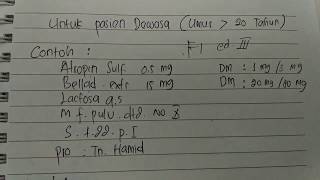 Untuk pasien Dewasa (Umur > 20 Tahun)
Contoh : FI ed III
Atropin Sulf 0.5 mg DM : 1 mg / 3 mg
Bellad. extr 15 mg DM : 20 mg / 80 mg
Lactosa q.s
M f. pulv. dtd. No X
S. t.dd. p. I
pro : Tn. Hamid